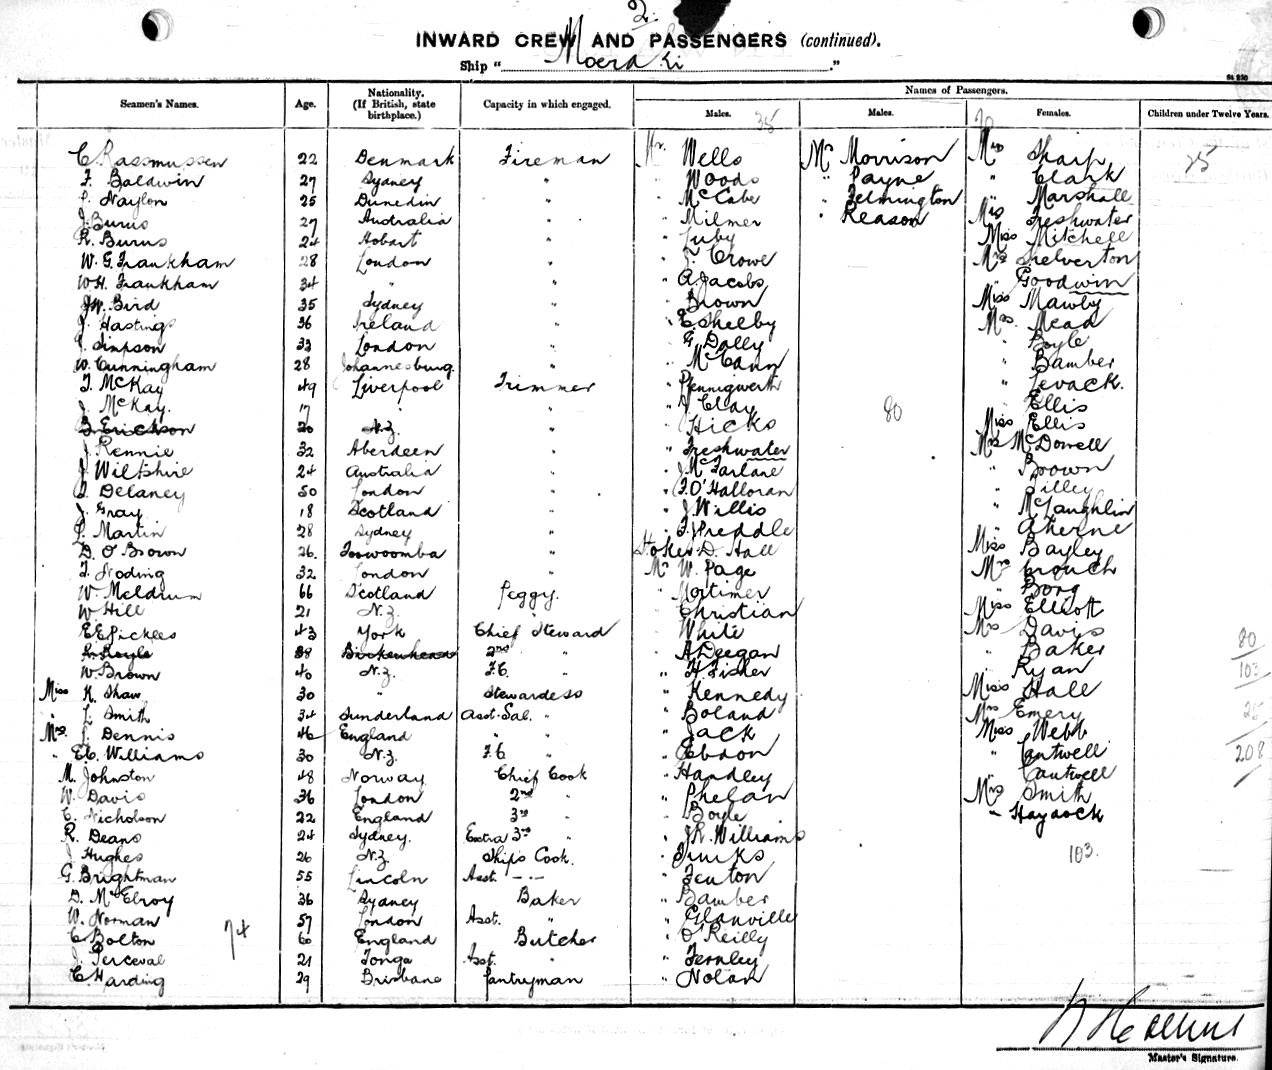 2.
INWARD CREW AND PASSENGERS (continued).
Ship "Moeraki."
Seamen's Names. Age. Nationality. (If British, state birthplace.) Capacity in which engaged. Names of Passengers.
Males. Males. Females. Children under Twelve Years.
35 70
C. Rassmussen 22 Denmark Fireman Mr. Wells Mr Morrison Miss Sharp 25
F. Baldwin 27 Sydney " " Woods " Payne " Clark
L. Naylon 25 Dunedin " " McCabe " Felmington " Marshall
J. Burns 27 Australia " " Milmer " Reason Mrs Freshwater
R. Burns 24 Hobart " " Luby Miss Mitchell
W. G. Frankham 28 London " " J. Crowe Mrs Shelverton
W H. Frankham 34 " " " A. Jacobs " Goodwin
J W. Bird 35 Sydney " " Brown Miss Mawby
J. Hastings 36 Ireland " " E Shelby Mrs. Mead
J. Simpson 33 London " " G. Dolly " Boyle
W. Cunningham 28 Johannesburg " " McCann " Bamber
T. McKay 49 Liverpool Trimmer " Pennigwerth " Levack.
J. McKay. 17 " " " J Clay 80 " Ellis
B. Erickson 20 N.Z. " " Hicks Miss Ellis
J. Rennie 32 Aberdeen " " Freshwater Mrs McDowell
J. Wiltshire 24 Australia " " J. McFarlane " Brown
J. Delaney 50 London " " F. O'Halloran " Tilley
J. Gray 18 Scotland " " J. Willis " McLaughlin
L. Martin 28 Sydney " " F. Preddle " Aherne
D. O'Brown 26. Toowoomba " Stoker D. Hall Miss Bayley
T. Noding 32 London " Mr W. Page Mrs Crouch
W. Meldrum 66 Scotland Peggy. " Mortimer " Borg
W. Hill 21 N.Z. " " Christian Miss Elliott
E E Pickles 43 York Chief Steward " White Mrs Davis 80
Boyle 38 Birkenhead 2nd " " A Deegan " Baker
W. Brown 40 N.Z. F.C. " " H. Fisher " Ryan 103
Miss K. Shaw 30 " Stewardess " Kennedy Miss Hall
" L. Smith 34 Sunderland Asst-Sal. " " Boland Mrs Emery 25
Mrs. J. Dennis 46 England " " " Jack Miss Webb
" Williams 30 N.Z. F.C " " Ebdon " Cantwell 208
M. Johnston 48 Norway Chief Cook " Handley " Cantwell
W. Davis 36 London 2nd " " Phelan Mrs Smith
C. Nicholson 22 England 3rd " " Boyle " Haydock
R. Deans 24 Sydney. Extra 3rd " " J. R. Williams
J. Hughes 26 N.Z. Ships Cook. " Tunks 103.
G. Brightman 55 Lincoln Asst. - " - " Fenton
D. McElroy 36 Sydney Baker " Bamber
W. Norman 57 London Asst. " " Glanville
C Bolton 74 60 England Butcher " O'Reilly
J. Perceval 21 Tonga Asst. " " Fernley
C. Harding 29 Brisbane Pantryman " Nolan
Master's Signature.